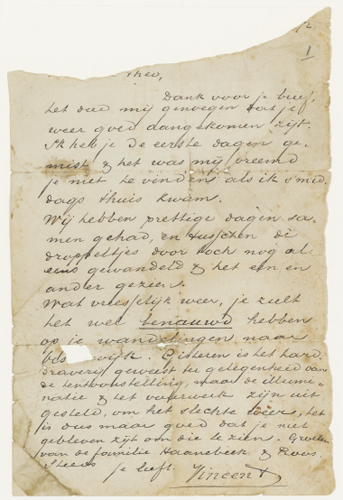 1
Theo,
Dank voor je brief,
het deed mij genoegen dat je
weer goed aangekomen zijt.
Ik heb je de eerste dagen ge-
mist & het was mij vreemd
je niet te vinden als ik s'mid-
dags t'huis kwam.
Wij hebben prettige dagen sa-
men gehad, en tusschen de
droppeltjes door toch nog al
eens gewandeld & het een en
ander gezien.
Wat vreesselijk weer, je zult
het wel benauwd hebben
op je wandelingen naar
wijk. Gisteren is het hard-
draverij geweest ter gelegenheid van
de tentoonstelling, maar de illumi-
natie & het vuurwerk zijn uit-
gesteld, om het slechte weer, het
is dus maar goed dat je niet
gebleven zijt om die te zien. Groeten
van de familie Haanebeek & Roos.
Steeds
je liefh. Vincent